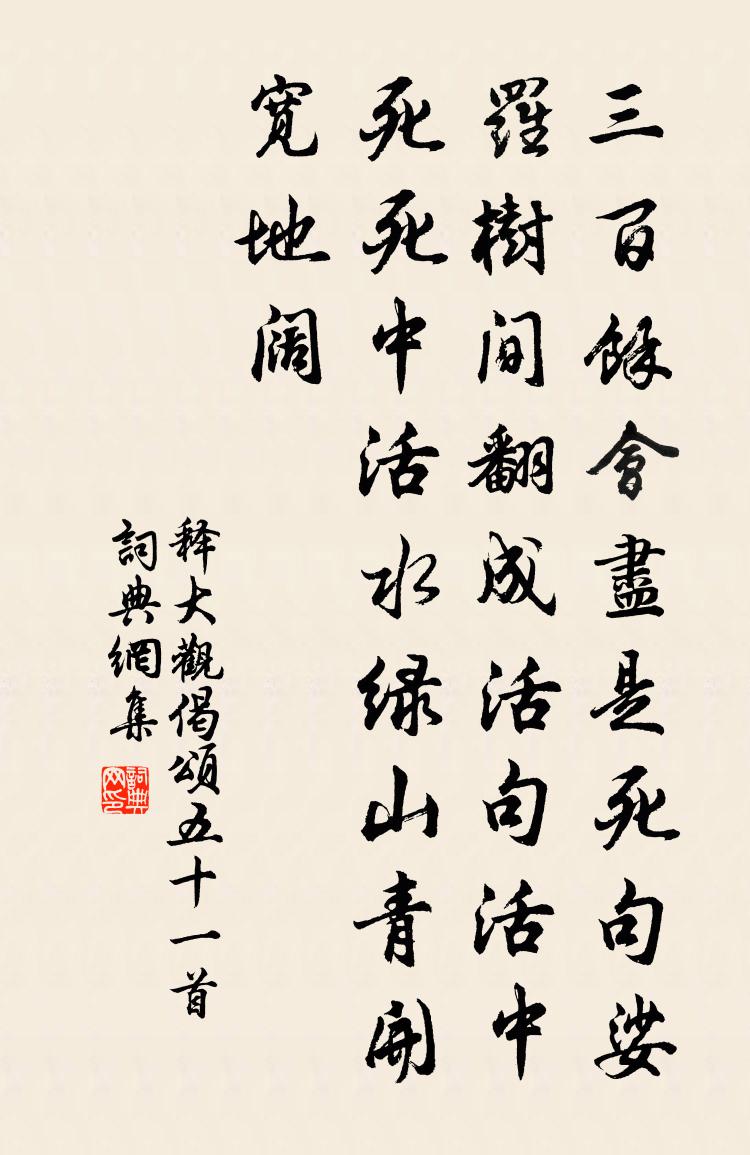 三百餘會盡是死句娑
羅樹间翻成活句活中
死死中活水緑山青開
寛地阔
释大觀偈頌五十一首
詞典網集
詞典网印